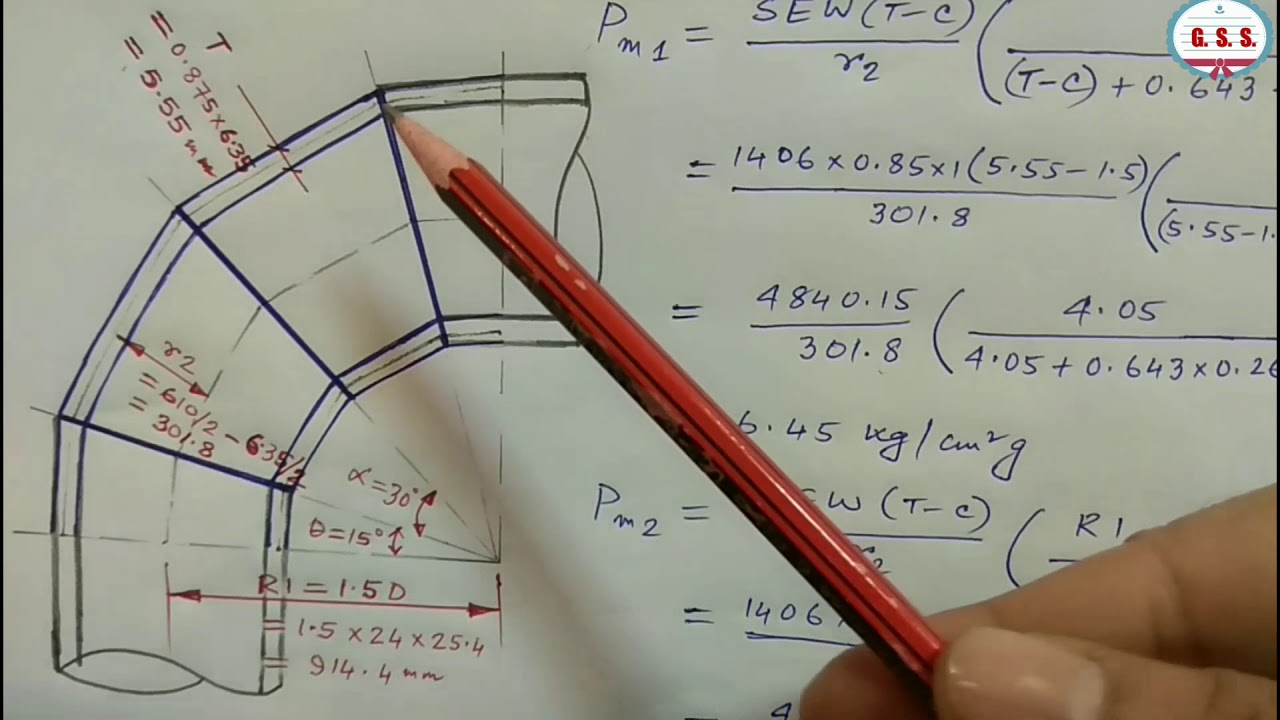 T
= 0.875×6.35
= 5.55 mm
r2
= 610/2 - 6.35/2
= 301.8
α=30°
θ=15°
R1 = 1.5D
= 1.5×24×25.4
= 914.4 mm
Pm1 = SEW(T-C)
r2
( (T-C) + 0.643
= 1406×0.85×1(5.55-1.5)
301.8
( (5.55-1.
= 4840.15
301.8
( 4.05
4.05+0.643×0.26
6.45 kg/cm²g
Pm2 = SEW(T-C)
r2
( R1
= 1406
=
G. S. S.